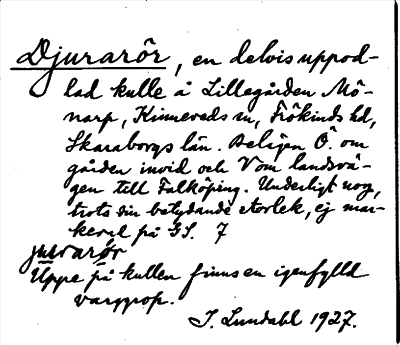 Djurarör, en delvis uppod-
lad kulle å Lillegården Mö-
narp, Kinneveds sn, Frökinds hd,
Skaraborgs län. Belägen Ö. om
gården invid och V om landsvä-
gen till Falköping. Underligt nog,
trots sin betydande storlek, ej mar-
kerad på GS. 7
jurarör
Uppe på kullen finns en igenfylld
varggrop.
J. Lundahl 1927.